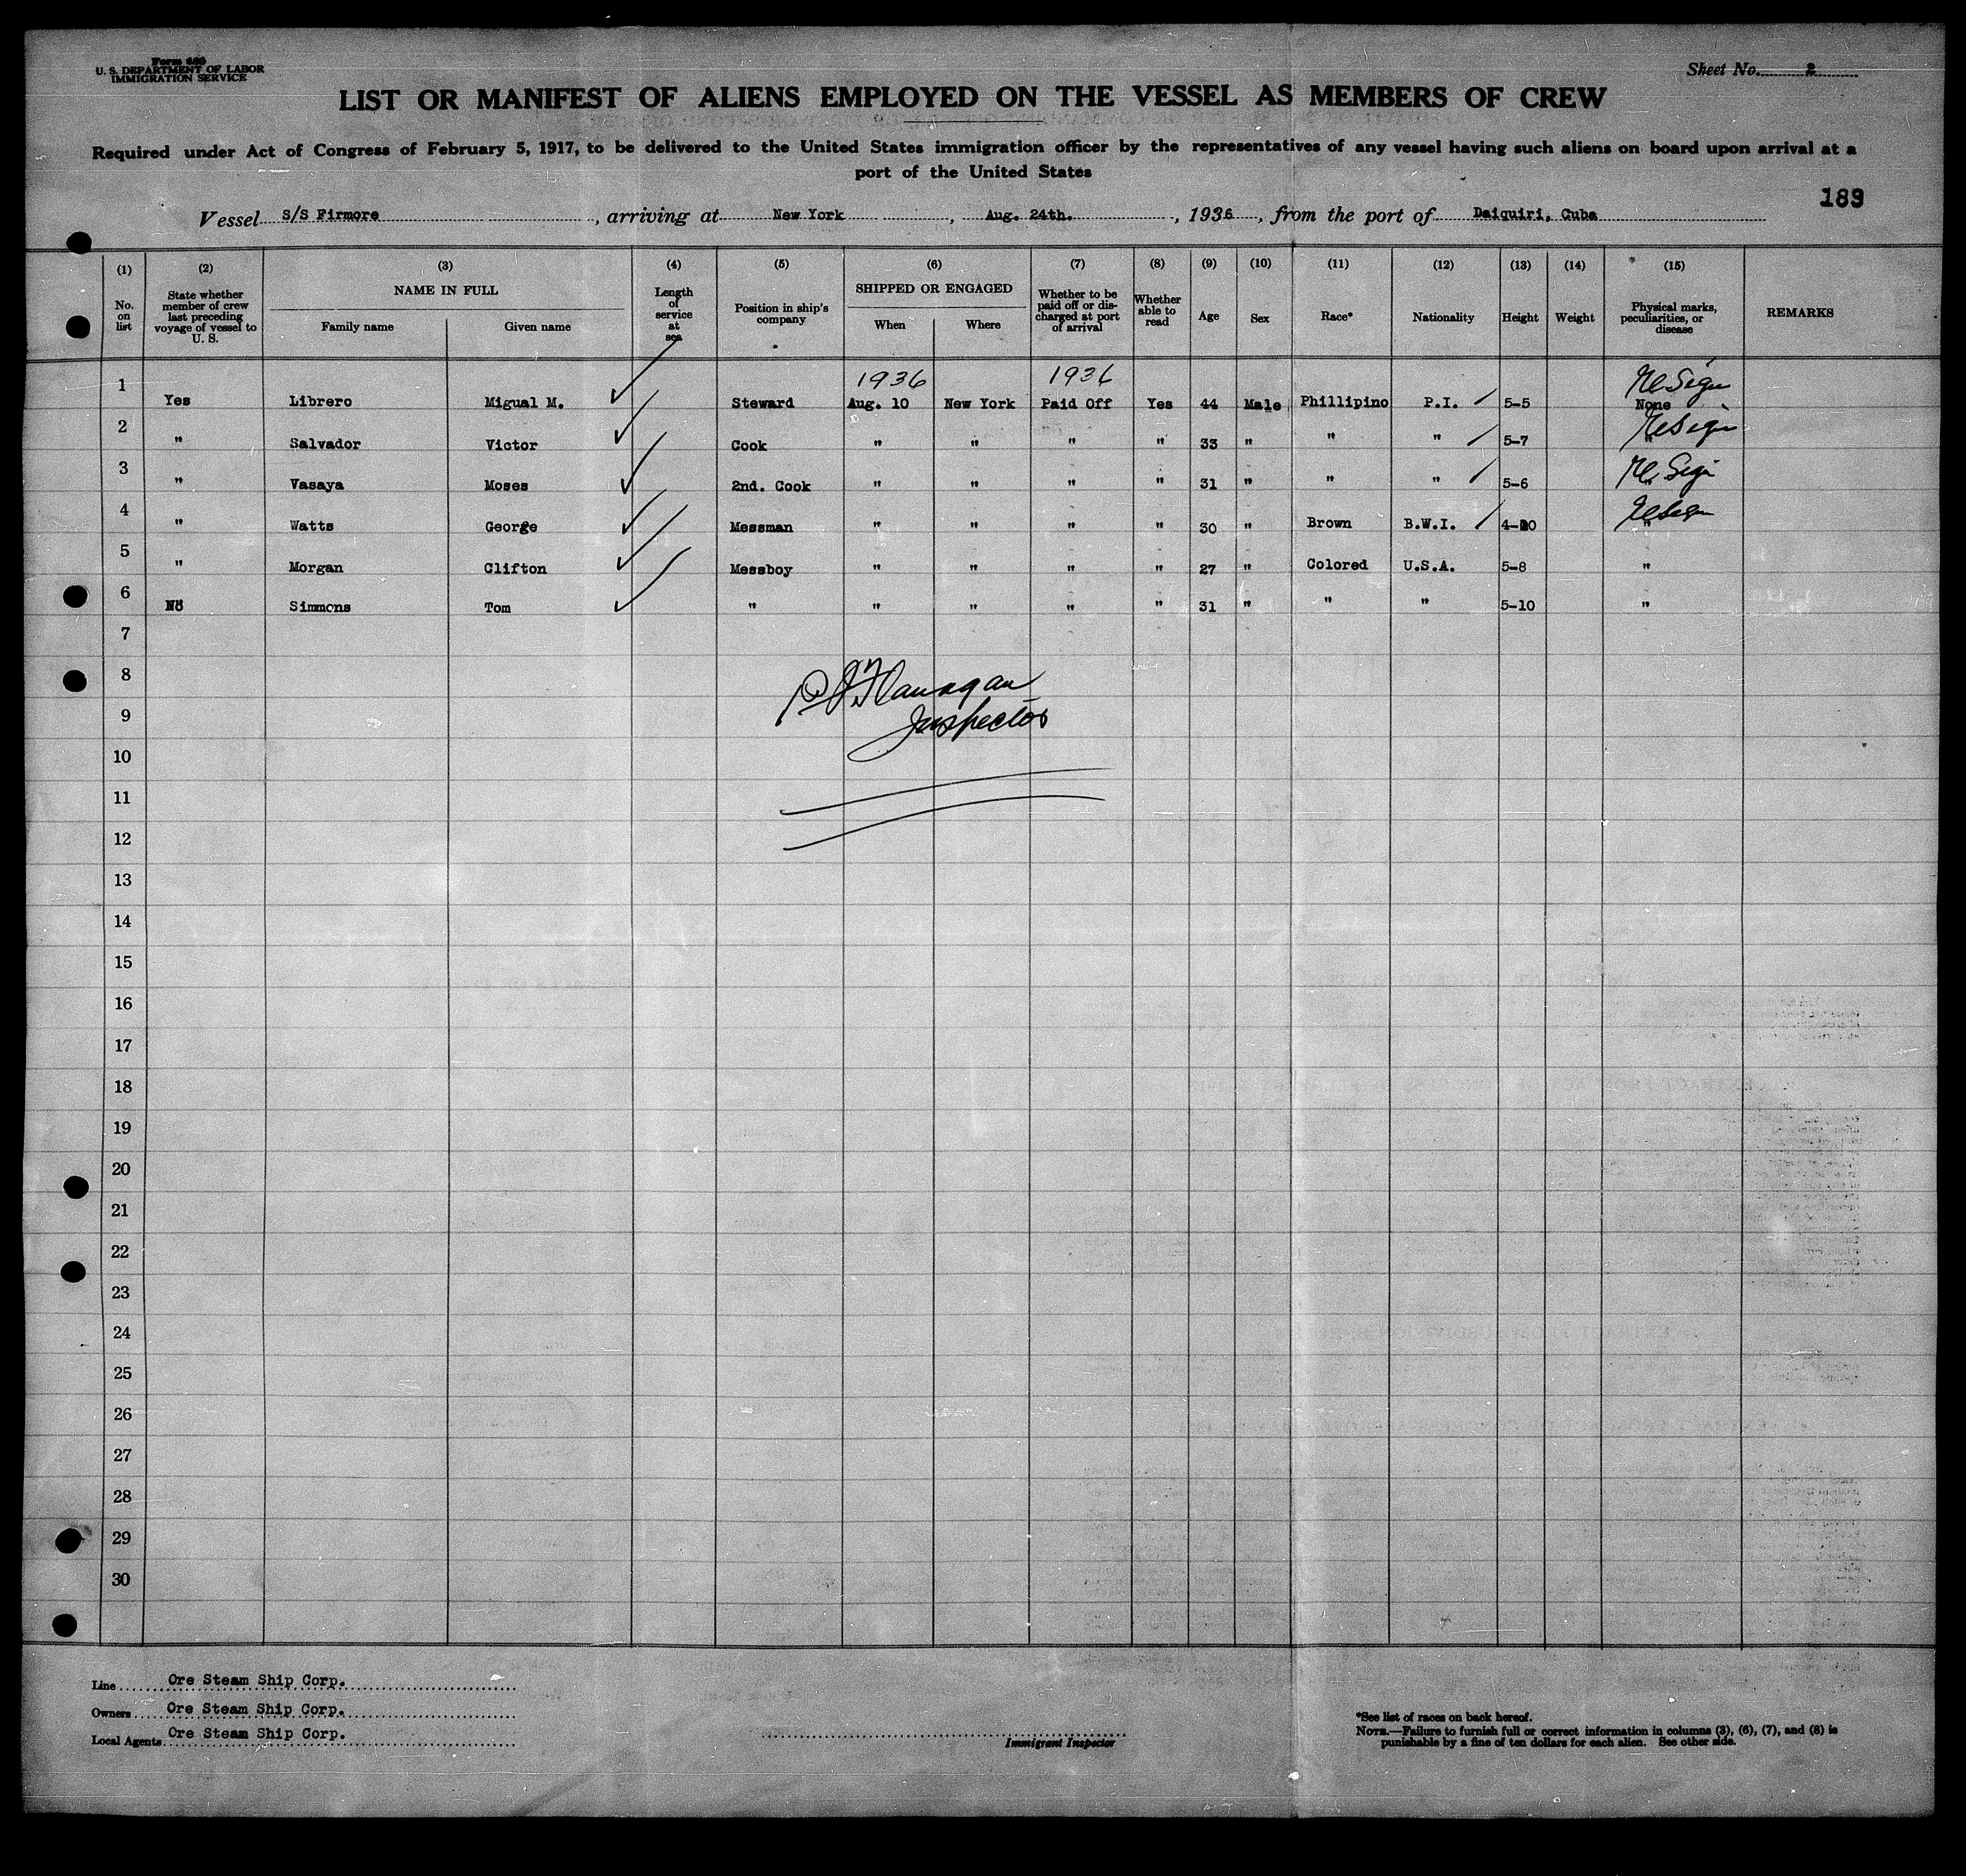 Form 680
U. S. DEPARTMENT OF LABOR
IMMIGRATION SERVICE
Sheet No. 2
LIST OR MANIFEST OF ALIENS EMPLOYED ON THE VESSEL AS MEMBERS OF CREW
Required under Act of Congress of February 5, 1917, to be delivered to the United States immigration officer by the representatives of any vessel having such aliens on board upon arrival at a
port of the United States
189
Vessel S/S Firmore, arriving at New York, Aug. 24th., 1936, from the port of Daiquiri, Cuba
(1) No. on list (2) State whether member of crew last preceding voyage of vessel to U. S. (3) NAME IN FULL Family name Given name (4) Length of service at sea (5) Position in ship's company (6) SHIPPED OR ENGAGED When Where (7) Whether to be paid off or discharged at port of arrival (8) Whether able to read (9) Age (10) Sex (11) Race* (12) Nationality (13) Height (14) Weight (15) Physical marks, peculiarities, or disease REMARKS
1936 1936
1 Yes Librero Migual M. Steward Aug. 10 New York Paid Off Yes 44 Male Phillipino P.I. 5-5 None
2 " Salvador Victor Cook " " " " 33 " " " 5-7 "
3 " Vasaya Moses 2nd. Cook " " " " 31 " " " 5-6 "
4 " Watts George Messman " " " " 30 " Brown B.W.I. "
5 " Morgan Clifton Messboy " " " " 27 " Colored U.S.A. 5-8 "
6 No Simmons Tom " " " " " 31 " " " 5-10 "
7
8
9
10
11
12
13
14
15
16
17
18
19
20
21
22
23
24
25
26
27
28
29
30
P J Flanagan
Inspector
Line Ore Steam Ship Corp.
Owners Ore Steam Ship Corp.
Local Agents Ore Steam Ship Corp.
Immigrant Inspector
*See list of races on back hereof.
NOTE.—Failure to furnish full or correct information in columns (3), (6), (7), and (8) is
punishable by a fine of ten dollars for each alien. See other side.